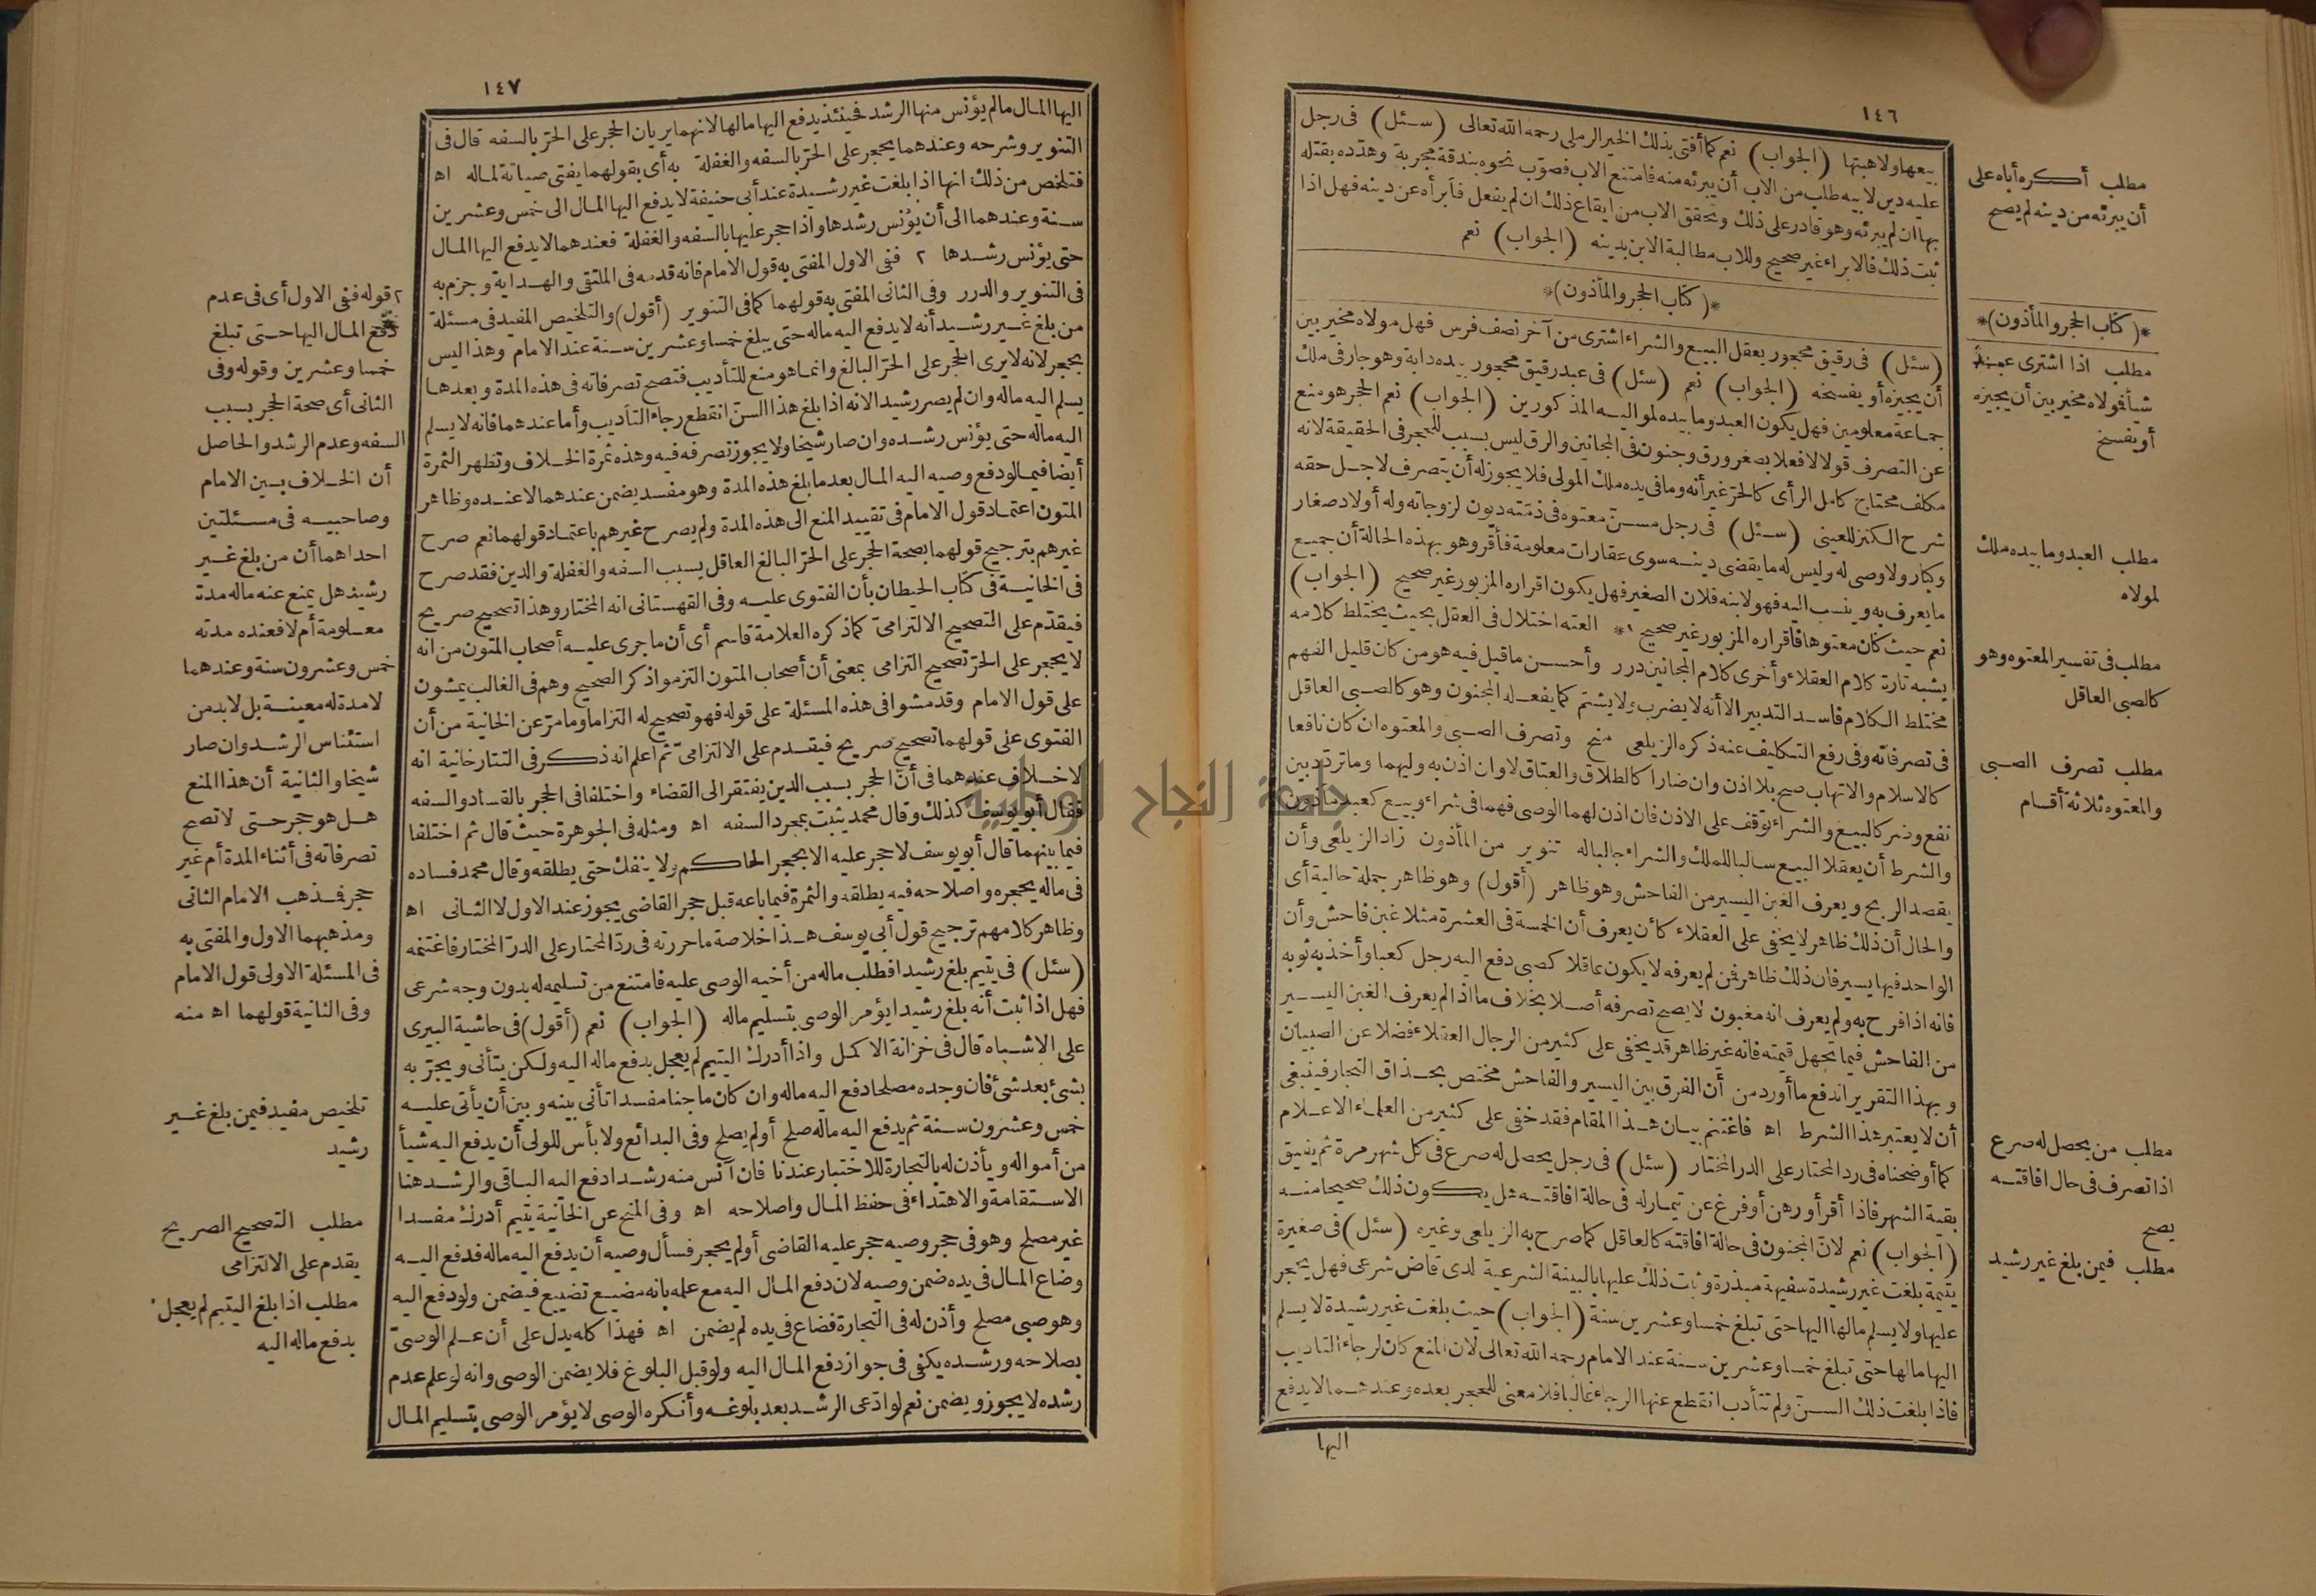 ١٤٦
بيعها ولا هبتها (الجواب) نعم كما أفتى بذلك الخير الرملى رحمه الله تعالى (سئل) فى رجل
عليه دين لابيه طلب من الاب أن يبرئه منه فامتنع الاب فصوّب نحوه بندقة مجربة وهدّده بقتله
بها ان لم يبرئه وهو قادر على ذلك وتحقق الاب من ايقاع ذلك ان لم يفعل فأبرأه عن دينه فهل اذا
ثبت ذلك فالابراء غير صحيح وللاب مطالبة الابن بدينه (الجواب) نعم
*(كتاب الحجر والمأذون)*
(سئل) فى رقيق محجور يعقل البيع والشراء اشترى من آخر نصف فرس فهل مولاه مخير بين
أن يجيزه أو يفسخه (الجواب) نعم (سئل) فى عبد رقيق محجور بيده دابة وهو جار فى ملك
جماعة معلومين فهل يكون العبد وما بيده لمواليه المذكورين (الجواب) نعم الحجر هو منع
عن التصرف قولا لا فعلا بصغر ورق وجنون فى المجانين والرق ليس بسبب للحجر فى الحقيقة لانه
مكلف محتاج كامل الرأى كالحرّ غير أنه وما فى يده ملك المولى فلا يجوز له أن يتصرف لاجل حقه
شرح الكنز للعينى (سئل) فى رجل مسنّ معتوه فى ذمّته ديون لزوجاته وله أولاد صغار
وكبار ولا وصى له وليس له ما يقضى دينه سوى عقارات معلومة فأقرّ وهو بهذه الحالة أن جميع
ما يعرف به وينسب اليه فهو لابنه فلان الصغير فهل يكون اقراره المزبور غير صحيح (الجواب)
نعم حيث كان معتوها فاقراره المزبور غير صحيح * العته اختلال فى العقل بحيث يختلط كلامه
يشبه تارة كلام العقلاء وأخرى كلام المجانين درر وأحسن ما قيل فيه هو من كان قليل الفهم
مختلط الكلام فاسد التدبير الا أنه لا يضرب ولا يشتم كما يفعله المجنون وهو كالصبى العاقل
فى تصرفاته وفى رفع التكليف عنه ذكره الزيلعى منح وتصرف الصبى والمعتوه ان كان نافعا
كالاسلام والاتهاب صح بلا اذن وان ضارا كالطلاق والعتاق لا وان اذن به وليهما وما تردّد بين
نفع وضر كالبيع والشراء توقف على الاذن فان اذن لهما الوصى فهما فى شراء وبيع كعبد مأذون
والشرط أن يعقلا البيع سالبا للملك والشراء جالبا له تنوير من المأذون زاد الزيلعى وأن
يقصد الربح ويعرف الغبن اليسير من الفاحش وهو ظاهر (أقول) وهو ظاهر جملة حالية أى
والحال أن ذلك ظاهر لا يخفى على العقلاء كأن يعرف أن الخمسة فى العشرة مثلا غبن فاحش وأن
الواحد فيها يسير فان ذلك ظاهر فمن لم يعرفه لا يكون عاقلا كصبى دفع اليه رجل كعبا وأخذ به ثوبه
فانه اذا فرح به ولم يعرف انه مغبون لا يصح تصرفه أصلا بخلاف ما اذا لم يعرف الغبن اليسير
من الفاحش فيما تجهل قيمته فانه غير ظاهر قد يخفى على كثير من الرجال العقلاء فضلا عن الصبيان
وبهذا التقرير اندفع ما أورد من أن الفرق بين اليسير والفاحش مختص بحذاق التجار فينبغى
أن لا يعتبر هذا الشرط اه فاغتنم بيان هذا المقام فقد خفى على كثير من العلماء الاعلام
كما أوضحناه فى رد المحتار على الدر المختار (سئل) فى رجل يحصل له صرع فى كل شهر مرة ثم يفيق
بقية الشهر فاذا أقر أو رهن أو فرغ عن تيمار له فى حالة افاقته هل يكون ذلك صحيحا منه
(الجواب) نعم لانّ المجنون فى حالة افاقته كالعاقل كما صرح به الزيلعى وغيره (سئل) فى صغيرة
يتيمة بلغت غير رشيدة سفيهة مبذرة وثبت ذلك عليها بالبينة الشرعية لدى قاض شرعى فهل يحجر
عليها ولا يسلم مالها اليها حتى تبلغ خمسا وعشرين سنة (الجواب) حيث بلغت غير رشيدة لا يسلم
اليها مالها حتى تبلغ خمسا وعشرين سنة عند الامام رحمه الله تعالى لان المنع كان لرجاء التأديب
فاذا بلغت ذلك السنّ ولم تتأدب انقطع عنها الرجاء غالبا فلا معنى للحجر بعده وعندهما لا يدفع
اليها
مطلب أكره أباه على
أن يبرئه من دينه لم يصح
*(كتاب الحجر والمأذون)*
مطلب اذا اشترى عبد
شيأ فمولاه مخير بين أن يجيزه
أو يفسخ
مطلب العبد وما بيده ملك
لمولاه
مطلب فى تفسير المعتوه وهو
كالصبى العاقل
مطلب تصرف الصبى
والمعتوه ثلاثة أقسام
مطلب من يحصل له صرع
اذا تصرف فى حال افاقته
يصح
مطلب فيمن بلغ غير رشيد
١٤٧
اليها المال ما لم يؤنس منها الرشد فحينئذ يدفع اليها مالها لانهما يريان الحجر على الحرّ بالسفه قال فى
التنوير وشرحه وعندهما يحجر على الحرّ بالسفه والغفلة به أى بقولهما يفتى صيانة لماله اه
فتلخص من ذلك انها اذا بلغت غير رشيدة عند أبى حنيفة لا يدفع اليها المال الى خمس وعشرين
سنة وعندهما الى أن يؤنس رشدها واذا حجر عليها بالسفه والغفلة فعندهما لا يدفع اليها المال
حتى يؤنس رشدها ٢ ففى الاول المفتى به قول الامام فانه قدمه فى الملتقى والهداية وجزم به
فى التنوير والدرر وفى الثانى المفتى به قولهما كما فى التنوير (أقول) والتلخيص المفيد فى مسئلة
من بلغ غير رشيد أنه لا يدفع اليه ماله حتى يبلغ خمسا وعشرين سنة عند الامام وهذا ليس
بحجر لانه لا يرى الحجر على الحرّ البالغ وانما هو منع للتأديب فتصح تصرفاته فى هذه المدة وبعدها
يسلم اليه ماله وان لم يصر رشيدا لانه اذا بلغ هذا السنّ انقطع رجاء التأديب وأما عندهما فانه لا يسلم
اليه ماله حتى يؤنس رشده وان صار شيخا ولا يجوز تصرفه فيه وهذه ثمرة الخلاف وتظهر الثمرة
أيضا فيما لو دفع وصيه اليه المال بعد ما بلغ هذه المدة وهو مفسد يضمن عندهما لا عنده وظاهر
المتون اعتماد قول الامام فى تقييد المنع الى هذه المدة ولم يصرح غيرهم باعتماد قولهما نعم صرح
غيرهم بترجيح قولهما بصحة الحجر على الحرّ البالغ العاقل بسبب السفه والغفلة والدين فقد صرح
فى الخانية فى كتاب الحيطان بأن الفتوى عليه وفى القهستانى انه المختار وهذا تصحيح صريح
فيقدّم على التصحيح الالتزامىّ كما ذكره العلامة قاسم أى أن ما جرى عليه أصحاب المتون من انه
لا يحجر على الحرّ تصحيح التزامى بمعنى أن أصحاب المتون التزموا ذكر الصحيح وهم فى الغالب يمشون
على قول الامام وقد مشوا فى هذه المسئلة على قوله فهو تصحيح له التزاما وما مرّ عن الخانية من أن
الفتوى على قولهما تصحيح صريح فيقدم على الالتزامىّ ثم اعلم انه ذكر فى التتارخانية انه
لا خلاف عندهما فى أنّ الحجر بسبب الدين يفتقر الى القضاء واختلفا فى الحجر بالفساد والسفه
فقال أبو يوسف كذلك وقال محمد يثبت بمجرد السفه اه ومثله فى الجوهرة حيث قال ثم اختلفا
فيما بينهما قال أبو يوسف لا حجر عليه الا بحجر الحاكم ولا ينفك حتى يطلقه وقال محمد فساده
فى ماله يحجره واصلاحه فيه يطلقه والثمرة فيما باعه قبل حجر القاضى يجوز عند الاول لا الثانى اه
وظاهر كلامهم ترجيح قول أبى يوسف هذا خلاصة ما حررته فى ردّ المحتار على الدرّ المختار فاغتنمه
(سئل) فى يتيم بلغ رشيدا فطلب ماله من أخيه الوصى عليه فامتنع من تسليمه له بدون وجه شرعى
فهل اذا ثبت أنه بلغ رشيدا يؤمر الوصى بتسليم ماله (الجواب) نعم (أقول) فى حاشية البيرى
على الاشباه قال فى خزانة الاكمل واذا أدرك اليتيم لم يعجل بدفع ماله اليه ولكن يتأنى ويجرّبه
بشئ بعد شئ فان وجده مصلحا دفع اليه ماله وان كان ماجنا مفسدا تأنى بينه وبين أن يأتى عليه
خمس وعشرون سنة ثم يدفع اليه ماله صلح أو لم يصلح وفى البدائع ولا بأس للولى أن يدفع اليه شيأ
من أمواله ويأذن له بالتجارة للاختبار عندنا فان آنس منه رشدا دفع اليه الباقى والرشد هنا
الاستقامة والاهتداء فى حفظ المال واصلاحه اه وفى المنح عن الخانية يتيم أدرك مفسدا
غير مصلح وهو فى حجر وصيه حجر عليه القاضى أو لم يحجر فسأل وصيه أن يدفع اليه ماله فدفع اليه
وضاع المال فى يده ضمن وصيه لان دفع المال اليه مع علمه بانه مضيع تضييع فيضمن ولو دفع اليه
وهو صبى مصلح وأذن له فى التجارة فضاع فى يده لم يضمن اه فهذا كله يدل على أن علم الوصىّ
بصلاحه ورشده يكفى فى جواز دفع المال اليه ولو قبل البلوغ فلا يضمن الوصى وانه لو علم عدم
رشده لا يجوز ويضمن نعم لو ادّعى الرشد بعد بلوغه وأنكره الوصى لا يؤمر الوصى بتسليم المال
٢ قوله ففى الاول أى فى عدم
دفع المال اليها حتى تبلغ
خمسا وعشرين وقوله وفى
الثانى أى صحة الحجر بسبب
السفه وعدم الرشد والحاصل
أن الخلاف بين الامام
وصاحبيه فى مسئلتين
احداهما أن من بلغ غير
رشيد هل يمنع عنه ماله مدة
معلومة أم لا فعنده مدته
خمس وعشرون سنة وعندهما
لا مدة له معينة بل لا بد من
استئناس الرشد وان صار
شيخا والثانية أن هذا المنع
هل هو حجر حتى لا تصح
تصرفاته فى أثناء المدة أم غير
حجر فذهب الامام الثانى
ومذهبهما الاول والمفتى به
فى المسئلة الاولى قول الامام
وفى الثانية قولهما اه منه
تلخيص مفيد فيمن بلغ غير
رشيد
مطلب التصحيح الصريح
يقدم على الالتزامى
مطلب اذا بلغ اليتيم لم يعجل
بدفع ماله اليه
جامعة النجاح الوطنية